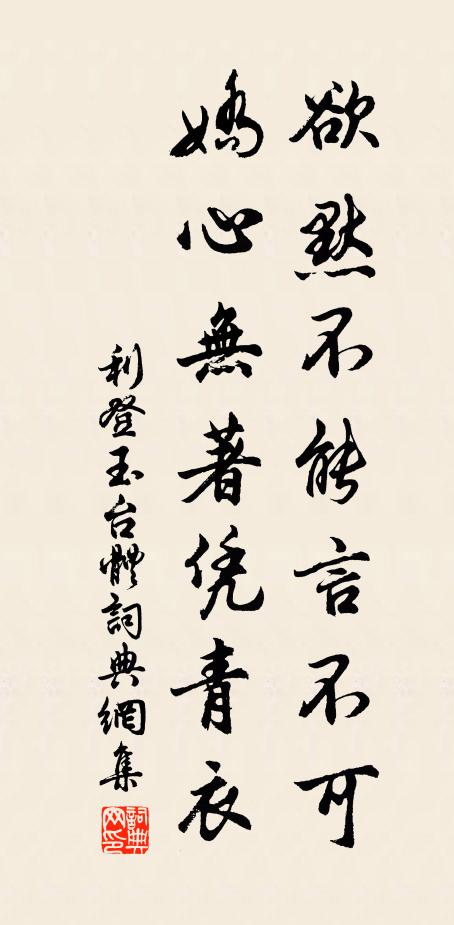 欲默不能言不可
嬌心無著凭青衣
利登玉台體詞典網集
詞典網印